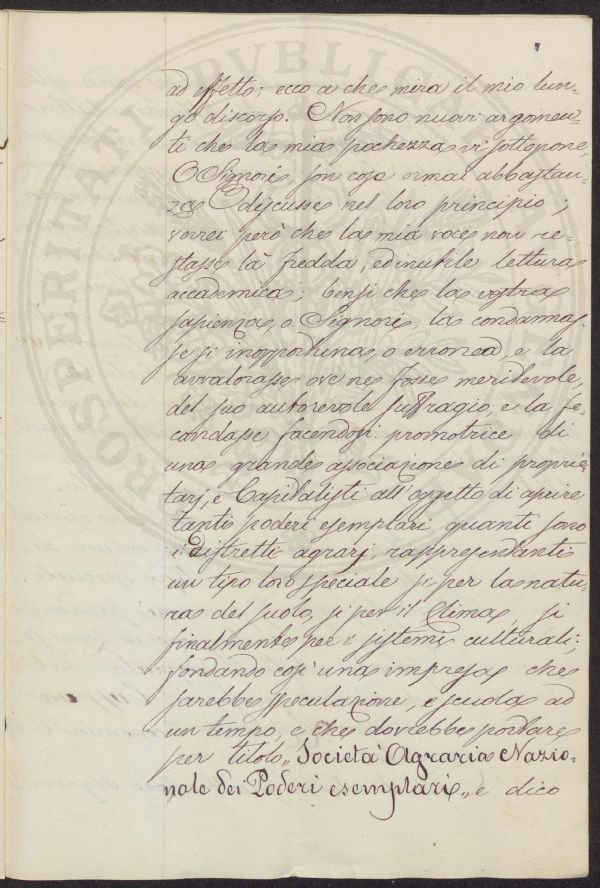 ad effetto; ecco a che mira il mio lun-
go discorso. Non sono nuovi argomen-
ti che la mia pochezza vi sottopone,
O Signori, son cose ormai abbastan-
za discusse nel loro principio;
vorrei però che la mia voce non re-
stasse là fredda, ed inutile lettura
accademica; bensì che la vostra
sapienza, o Signori, la condannas-
se si inopportuna, o erronea, e la
avvalorasse, ove ne fosse meritevole,
del suo autorevole suffragio, e la fe-
condasse facendosi promotrice di
una grande associazione di proprie-
tarj, e Capitalisti all'oggetto di aprire
tanti poderi esemplari quanti sono
i distretti agrarj rappresentanti
un tipo loro speciale sì per la natu-
ra del suolo, sì per il Clima, sì
finalmente per i sistemi culturali;
fondando così una impresa che
sarebbe speculazione, e scuola ad
un tempo, e che dovrebbe portare
per titolo „ Società Agraria Nazio-
nale dei Poderi esemplari „ e dico
PVBLICA
PROSPERITATI